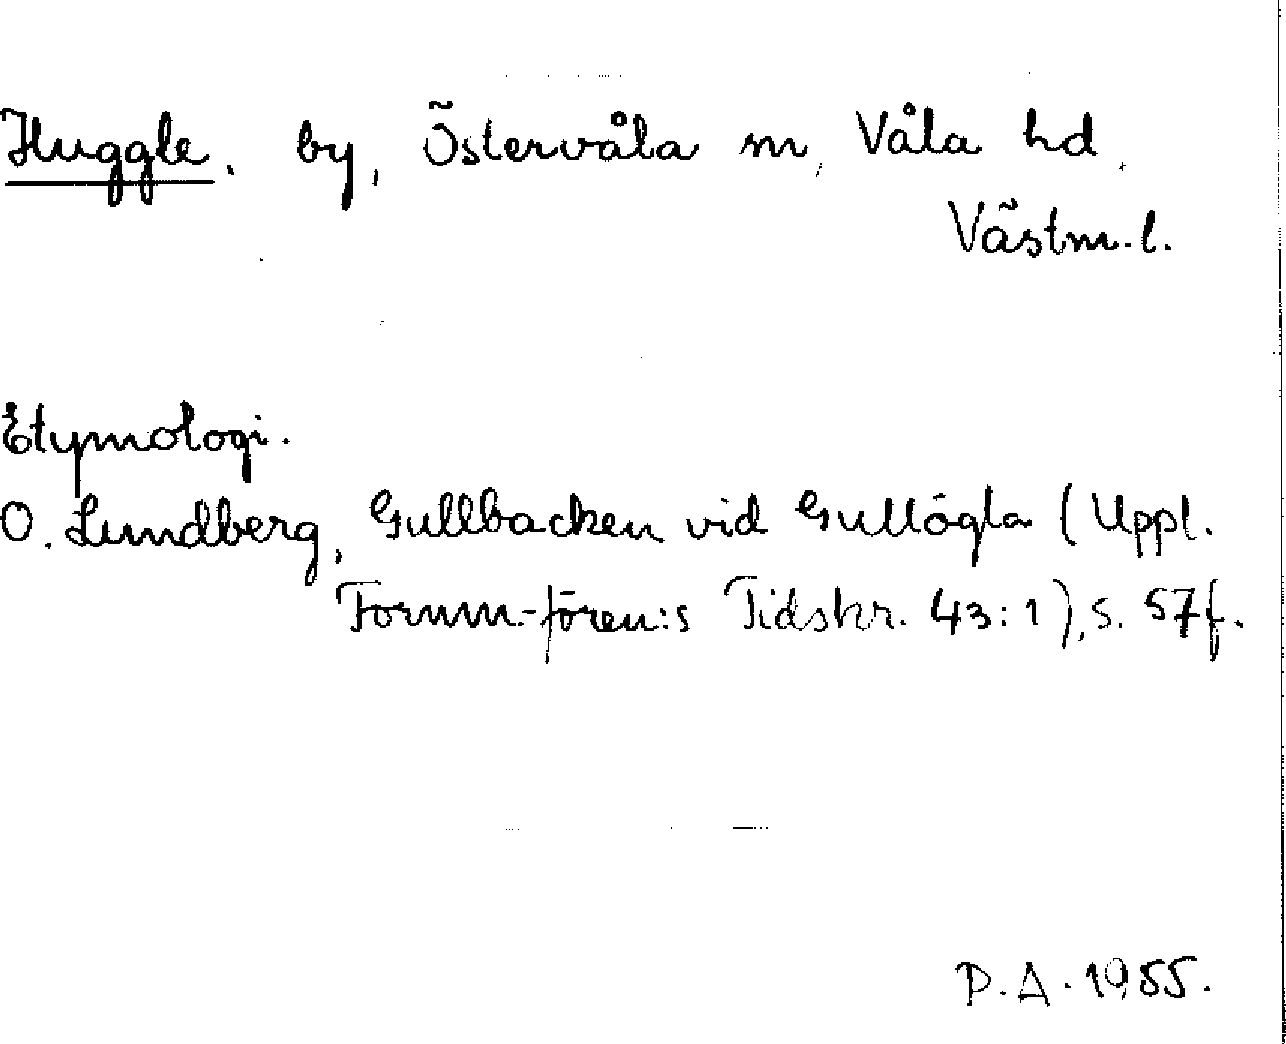 Huggle, by, Östervåla sn, Våla hd,
Västm. l.
Etymologi.
O. Lundberg, Gullbacken vid Gullögla (Uppl.
Fornm.-fören:s Tidskr. 43:1), s. 57 f.
P. A. 1955.